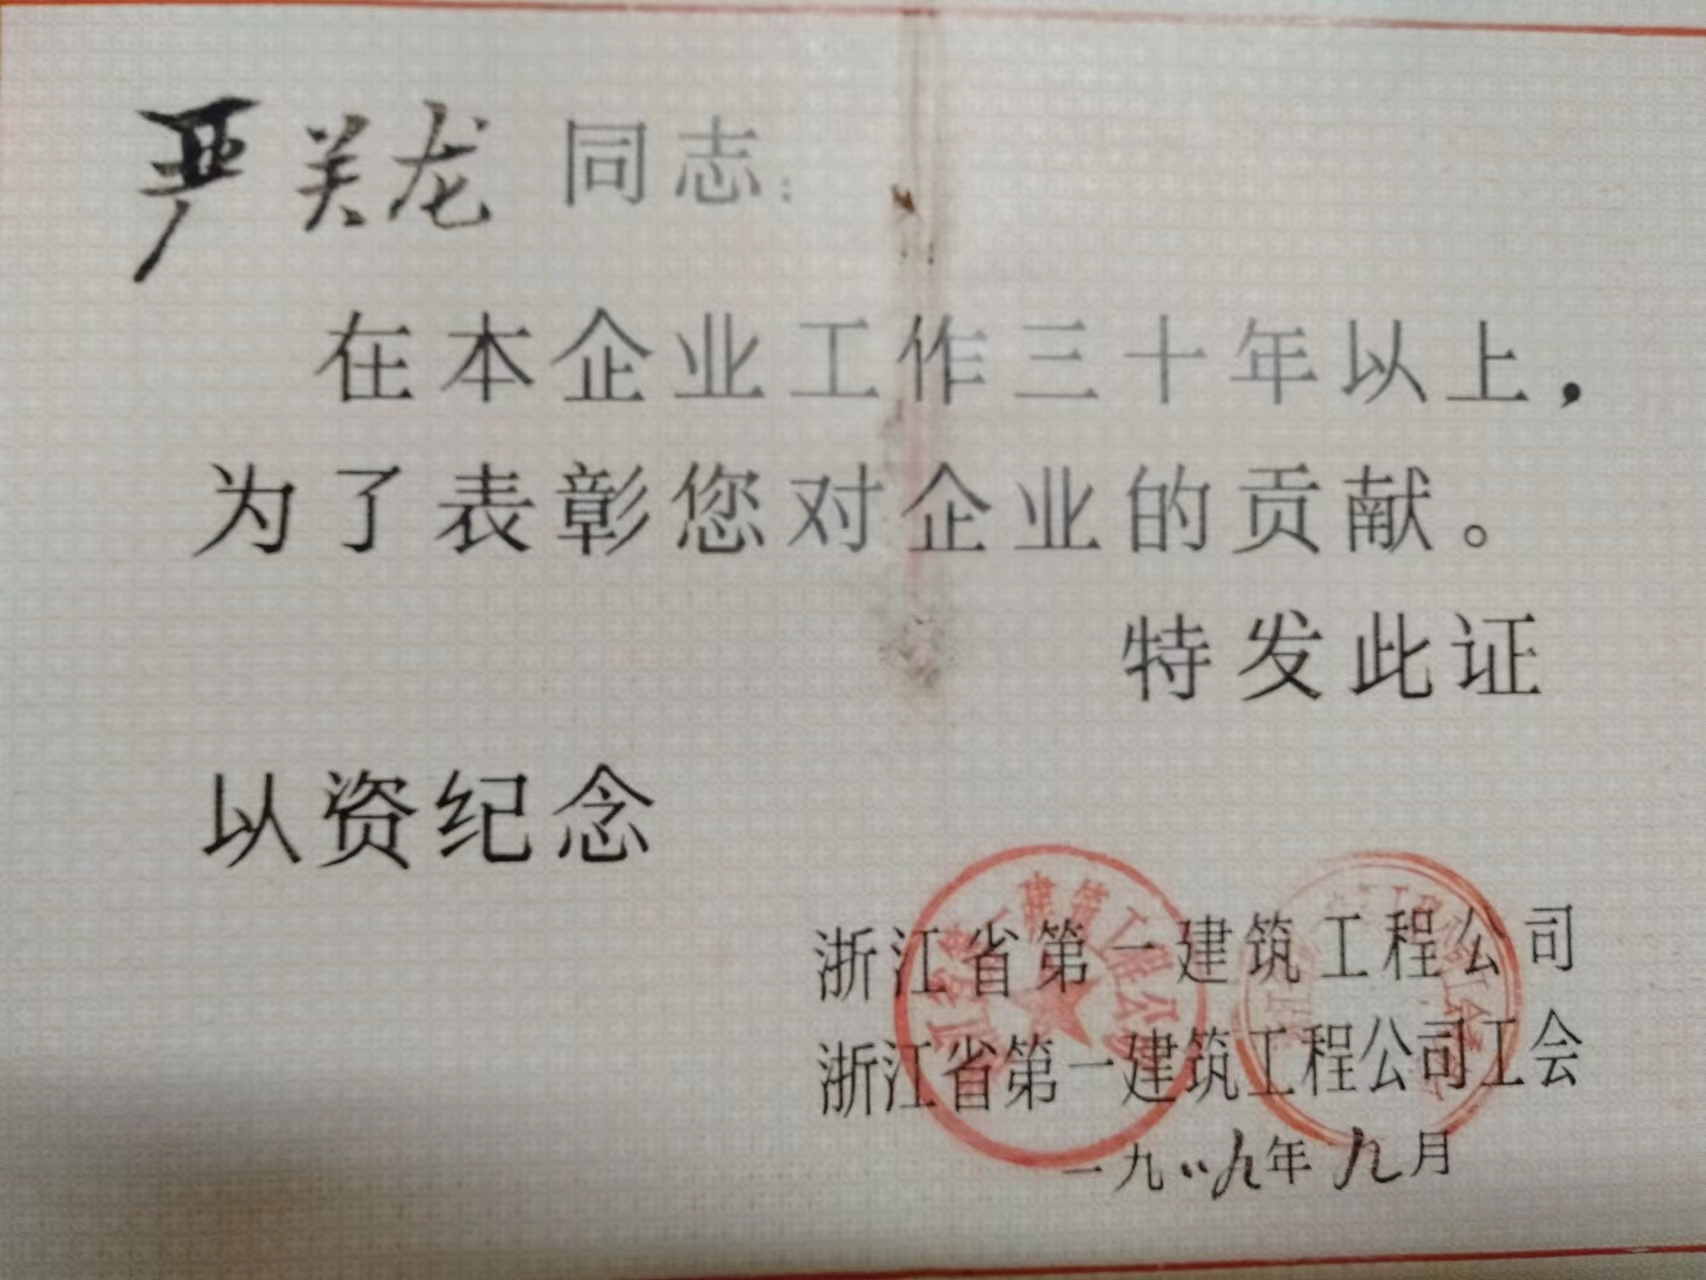 严关龙同志：
在本企业工作三十年以上，
为了表彰您对企业的贡献。
特发此证
以资纪念
浙江省第一建筑工程公司
浙江省第一建筑工程公司工会
一九八九年九月